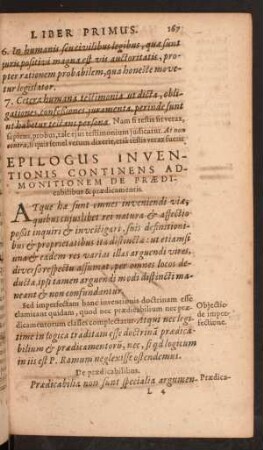 LIBER PRIMUS. 167
6. In humanis seu civilibus legibus, quæ sunt
juris positivi magna est vis auctoritatis, pro-
pter rationem probabilem, qua honeste move-
tur legislator.
7. Cetera humana testimonia ut dicta, obli-
gationes, confessiones, juramenta, perinde sunt
ut habetur testans persona. Nam si testis sit verax,
sapiens, probus, tale ejus testimonium judicatur. At non
contra, si quis semel verum dixerit, etiam verax fuerit.
EPILOGUS INVEN-
TIONIS CONTINENS AD-
MONITIONEM DE PRÆDI-
cabilibus & prædicamentis.
ATque hæ sunt omnes inveniendi viæ,
quibus cujuslibet rei natura & affectio
possit inquiri & investigari, suis definitioni-
bus & proprietatibus ita distincta: ut etiamsi
una & eadem res varias illas arguendi vires,
diverso respectu assumat, per omnes locos de-
ducta, ipsi tamen arguendi modi distincti ma-
neant & non confundantur.
Sed imperfectam hanc inventionis doctrinam esse
clamitant quidam, quod nec prædicabilium nec præ-
dicamentorum classes complectatur. Atqui nec legi-
time in logica traditam esse doctrinã prædica-
bilium & prædicamentorũ, nec, si qd logicum
in iis est P. Ramum neglexisse ostendemus.
Objectio
de imper-
fectione.
De prædicabilibus.
Prædicabilia non sunt specialia argumen-
Prædica-
L 4